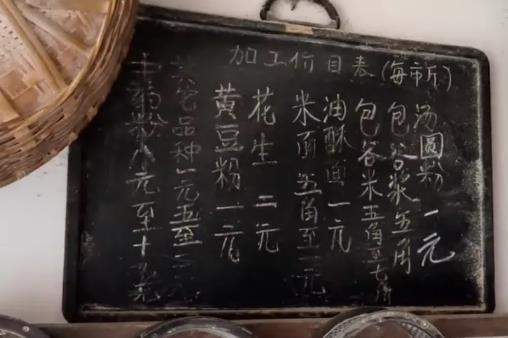 加工价目表(每市斤)
汤圆粉一元
包谷浆五角
包谷米五角至七角
油酥面一元
米面五角至一元
花生二元
黄豆粉一元
其它品种一元五至元
中药粉元至十元